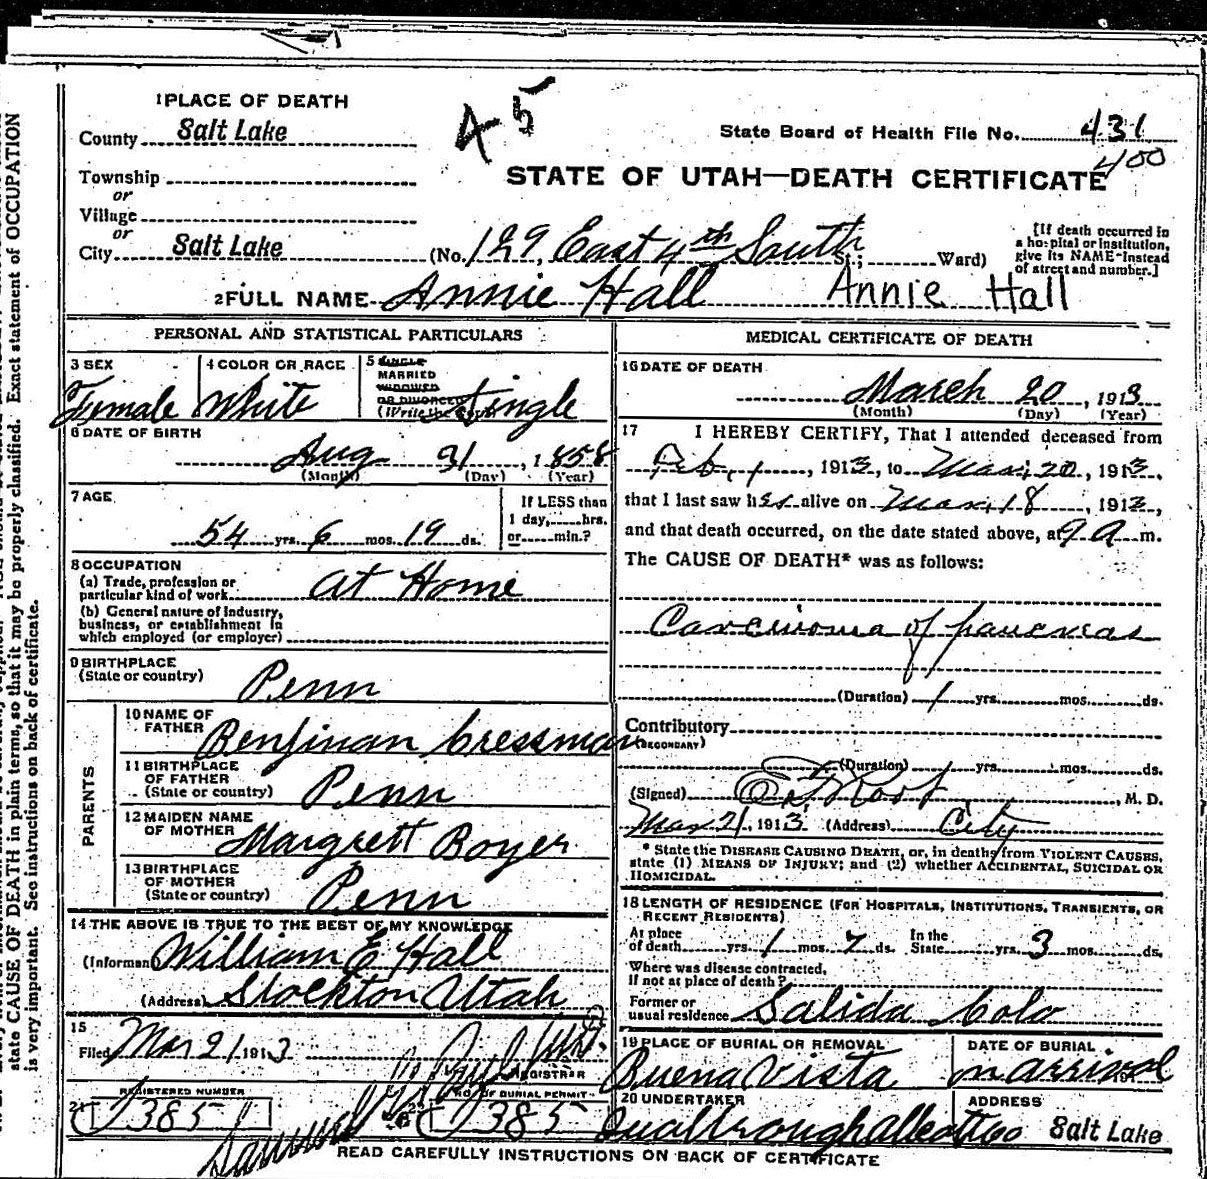 state CAUSE OF DEATH in plain terms, so that it may be properly classified. Exact statement of OCCUPATION
is very important. See instructions on back of certificate.
1 PLACE OF DEATH
County Salt Lake
45
State Board of Health File No. 431
400
STATE OF UTAH—DEATH CERTIFICATE
Township
or
Village
or
City Salt Lake (No. 129 East 4th South St.; Ward)
[If death occurred in
a hospital or institution,
give its NAME instead
of street and number.]
2 FULL NAME Annie Hall Annie Hall
PERSONAL AND STATISTICAL PARTICULARS
3 SEX
Female
4 COLOR OR RACE
White
5 SINGLE
MARRIED
WIDOWED
OR DIVORCED
(Write the word) Single
6 DATE OF BIRTH
Aug 31, 1858
(Month) (Day) (Year)
7 AGE
54 yrs. 6 mos. 19 ds.
If LESS than
1 day, hrs.
or min.?
8 OCCUPATION
(a) Trade, profession or
particular kind of work At Home
(b) General nature of Industry,
business, or establishment in
which employed (or employer)
9 BIRTHPLACE
(State or country) Penn
PARENTS
10 NAME OF
FATHER Benjiman Cressman
11 BIRTHPLACE
OF FATHER
(State or country) Penn
12 MAIDEN NAME
OF MOTHER Margrett Boyer
13 BIRTHPLACE
OF MOTHER
(State or country) Penn
14 THE ABOVE IS TRUE TO THE BEST OF MY KNOWLEDGE
(Informant) William E Hall
(Address) Stockton Utah
15
Filed Mar 21 1913
REGISTRAR
REGISTERED NUMBER
21 J 385
NO. OF BURIAL PERMIT
22 J 385
MEDICAL CERTIFICATE OF DEATH
16 DATE OF DEATH
March 20, 1913
(Month) (Day) (Year)
17 I HEREBY CERTIFY, That I attended deceased from
Feb, 1, 1913, to Mar, 20, 1913,
that I last saw her alive on Mar, 18, 1913,
and that death occurred, on the date stated above, at 9 a m.
The CAUSE OF DEATH* was as follows:
Carcinoma of pancreas
(Duration) 1 yrs. mos. ds.
Contributory
(SECONDARY)
(Duration) yrs. mos. ds.
(Signed) E F Root, M. D.
Mar 21, 1913 (Address) City
* State the DISEASE CAUSING DEATH, or, in deaths from VIOLENT CAUSES,
state (1) MEANS OF INJURY; and (2) whether ACCIDENTAL, SUICIDAL OR
HOMICIDAL.
18 LENGTH OF RESIDENCE (FOR HOSPITALS, INSTITUTIONS, TRANSIENTS, OR
RECENT RESIDENTS)
At place
of death yrs. 1 mos. 7 ds.
In the
State yrs. 3 mos. ds.
Where was disease contracted,
if not at place of death?
Former or
usual residence Salida Colo
19 PLACE OF BURIAL OR REMOVAL
Buena Vista
DATE OF BURIAL
on arrival
20 UNDERTAKER
ADDRESS
Salt Lake
READ CAREFULLY INSTRUCTIONS ON BACK OF CERTIFICATE